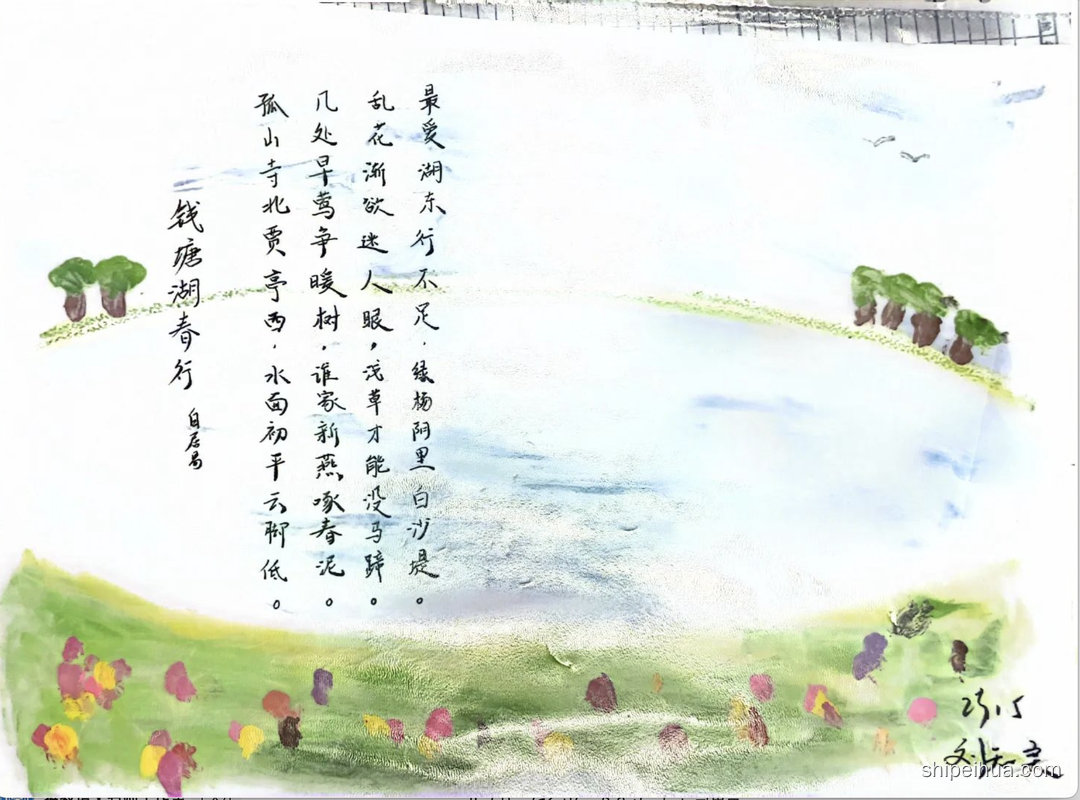 钱塘湖春行
白居易
孤山寺北贾亭西，水面初平云脚低。
几处早莺争暖树，谁家新燕啄春泥。
乱花渐欲迷人眼，浅草才能没马蹄。
最爱湖东行不足，绿杨阴里白沙堤。
shipeihua.com